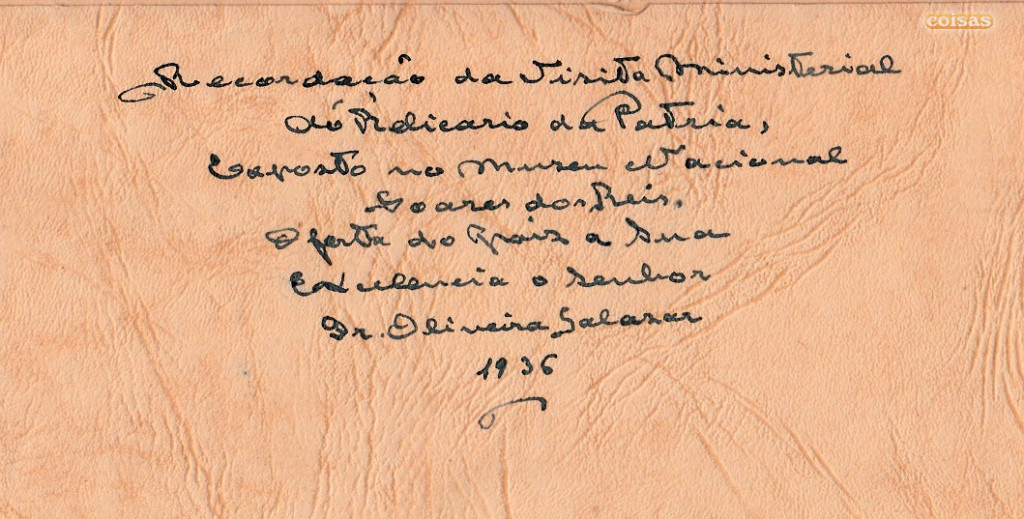 coisas
Recordação da Visita Ministerial
dó Rèlicario da Patria,
Exposto no Museu Nacional
Soares dos Reis.
Oferta do Paiz a Sua
Excelencia o Senhor
Dr. Oliveira Salazar
1936